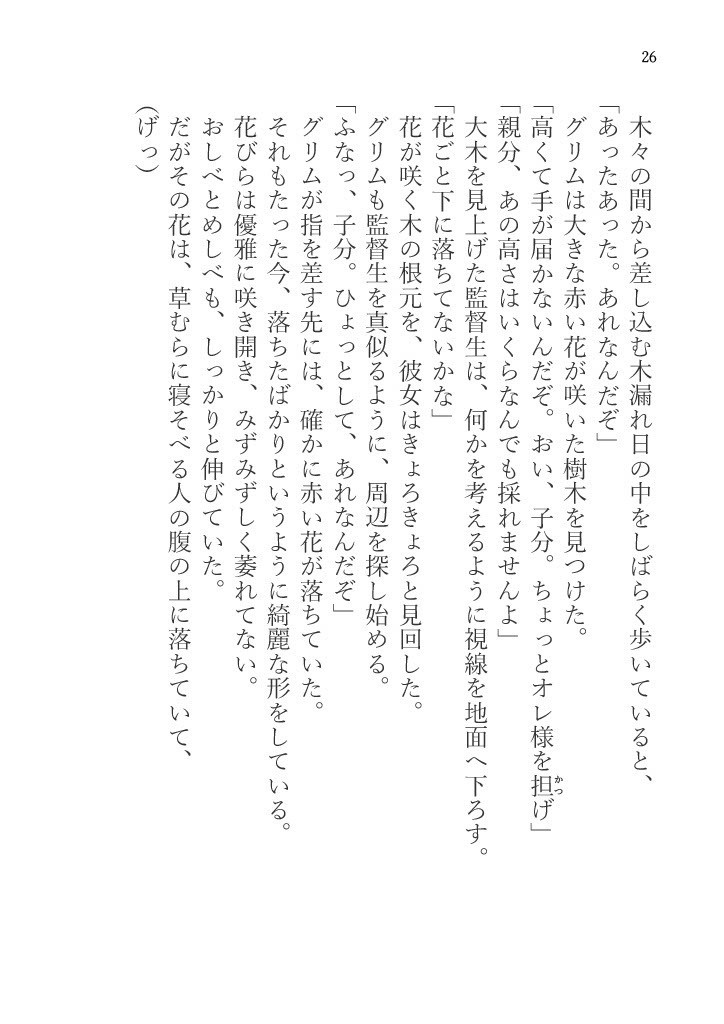 26
木々の間から差し込む木漏れ日の中をしばらく歩いていると、
「あったあった。あれなんだぞ」
グリムは大きな赤い花が咲いた樹木を見つけた。
「高くて手が届かないんだぞ。おい、子分。ちょっとオレ様を担げ」
かつ
「親分、あの高さはいくらなんでも採れませんよ」
大木を見上げた監督生は、何かを考えるように視線を地面へ下ろす。
「花ごと下に落ちてないかな」
花が咲く木の根元を、彼女はきょろきょろと見回した。
グリムも監督生を真似るように、周辺を探し始める。
「ふなっ、子分。ひょっとして、あれなんだぞ」
グリムが指を差す先には、確かに赤い花が落ちていた。
それもたった今、落ちたばかりというように綺麗な形をしている。
花びらは優雅に咲き開き、みずみずしく萎れてない。
おしべとめしべも、しっかりと伸びていた。
だがその花は、草むらに寝そべる人の腹の上に落ちていて、
(げっ)